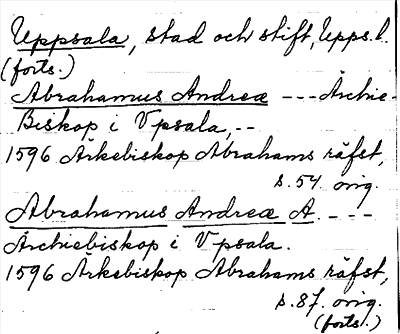 Uppsala, stad och stift, Upps. l.
(forts.)
Abrahamus Andreæ --- Ärchie-
Biskop i Vpsala, --
1596 Ärkebiskop Abrahams räfst,
s. 54. orig.
Abrahamus Andreæ A. ----
Ärchiebiskop i Vpsala.
1596 Ärkebiskop Abrahams räfst,
s. 87. orig.
(forts.)